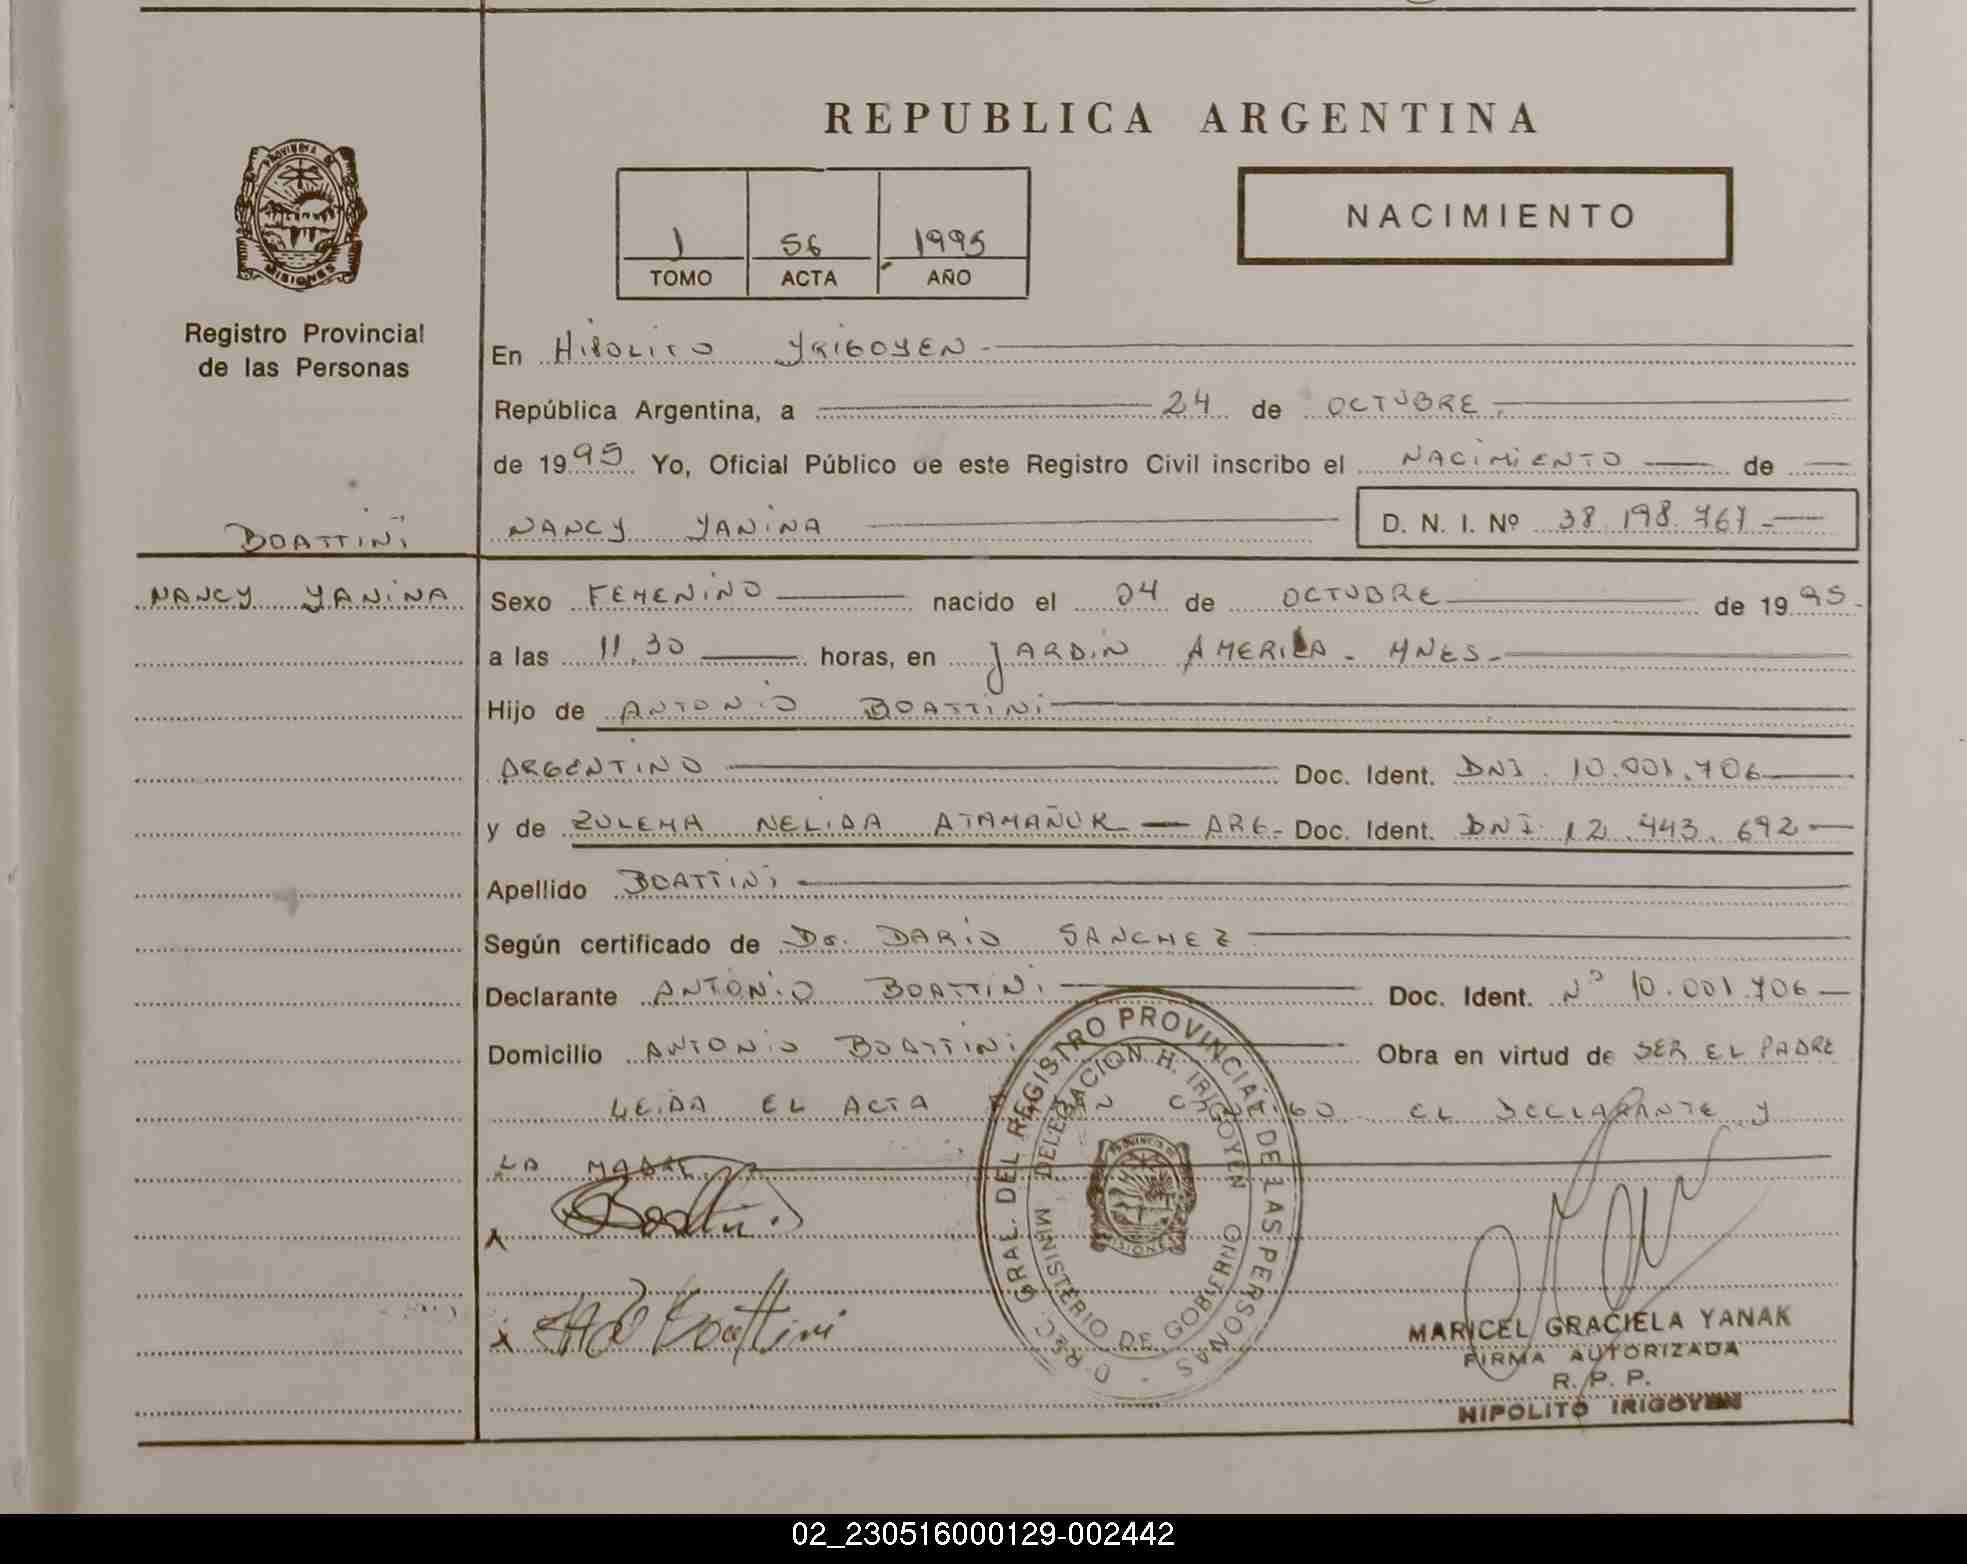 REPUBLICA ARGENTINA
NACIMIENTO
1 56 1995
TOMO ACTA AÑO
PROVINCIA DE MISIONES
Registro Provincial
de las Personas
En HIPOLITO YRIGOYEN
República Argentina, a 24 de OCTUBRE
de 1995 Yo, Oficial Público de este Registro Civil inscribo el NACIMIENTO de
BOATTINI
NANCY YANINA D. N. I. Nº 38.198.767
NANCY YANINA
Sexo FEMENINO nacido el 04 de OCTUBRE de 1995
a las 11,30 horas, en JARDIN AMERICA - MNES-
Hijo de ANTONIO BOATTINI
ARGENTINO Doc. Ident. DNI. 10.001.706
y de ZULEMA NELIDA ATAMAÑUK - ARG- Doc. Ident. DNI 12.443.692
Apellido BOATTINI
Según certificado de Dr. DARIO SANCHEZ
Declarante ANTONIO BOATTINI Doc. Ident. Nº 10.001.706
Domicilio ANTONIO BOATTINI Obra en virtud de SER EL PADRE
LEIDA EL ACTA EL DECLARANTE Y
LA MADRE
X Boattini
X Boattini
DIREC. GRAL. DEL REGISTRO PROVINCIAL DE LAS PERSONAS
DELEGACION H. IRIGOYEN
MINISTERIO DE GOBIERNO
MARICEL GRACIELA YANAK
FIRMA AUTORIZADA
R. P. P.
HIPOLITO IRIGOYEN
02_230516000129-002442